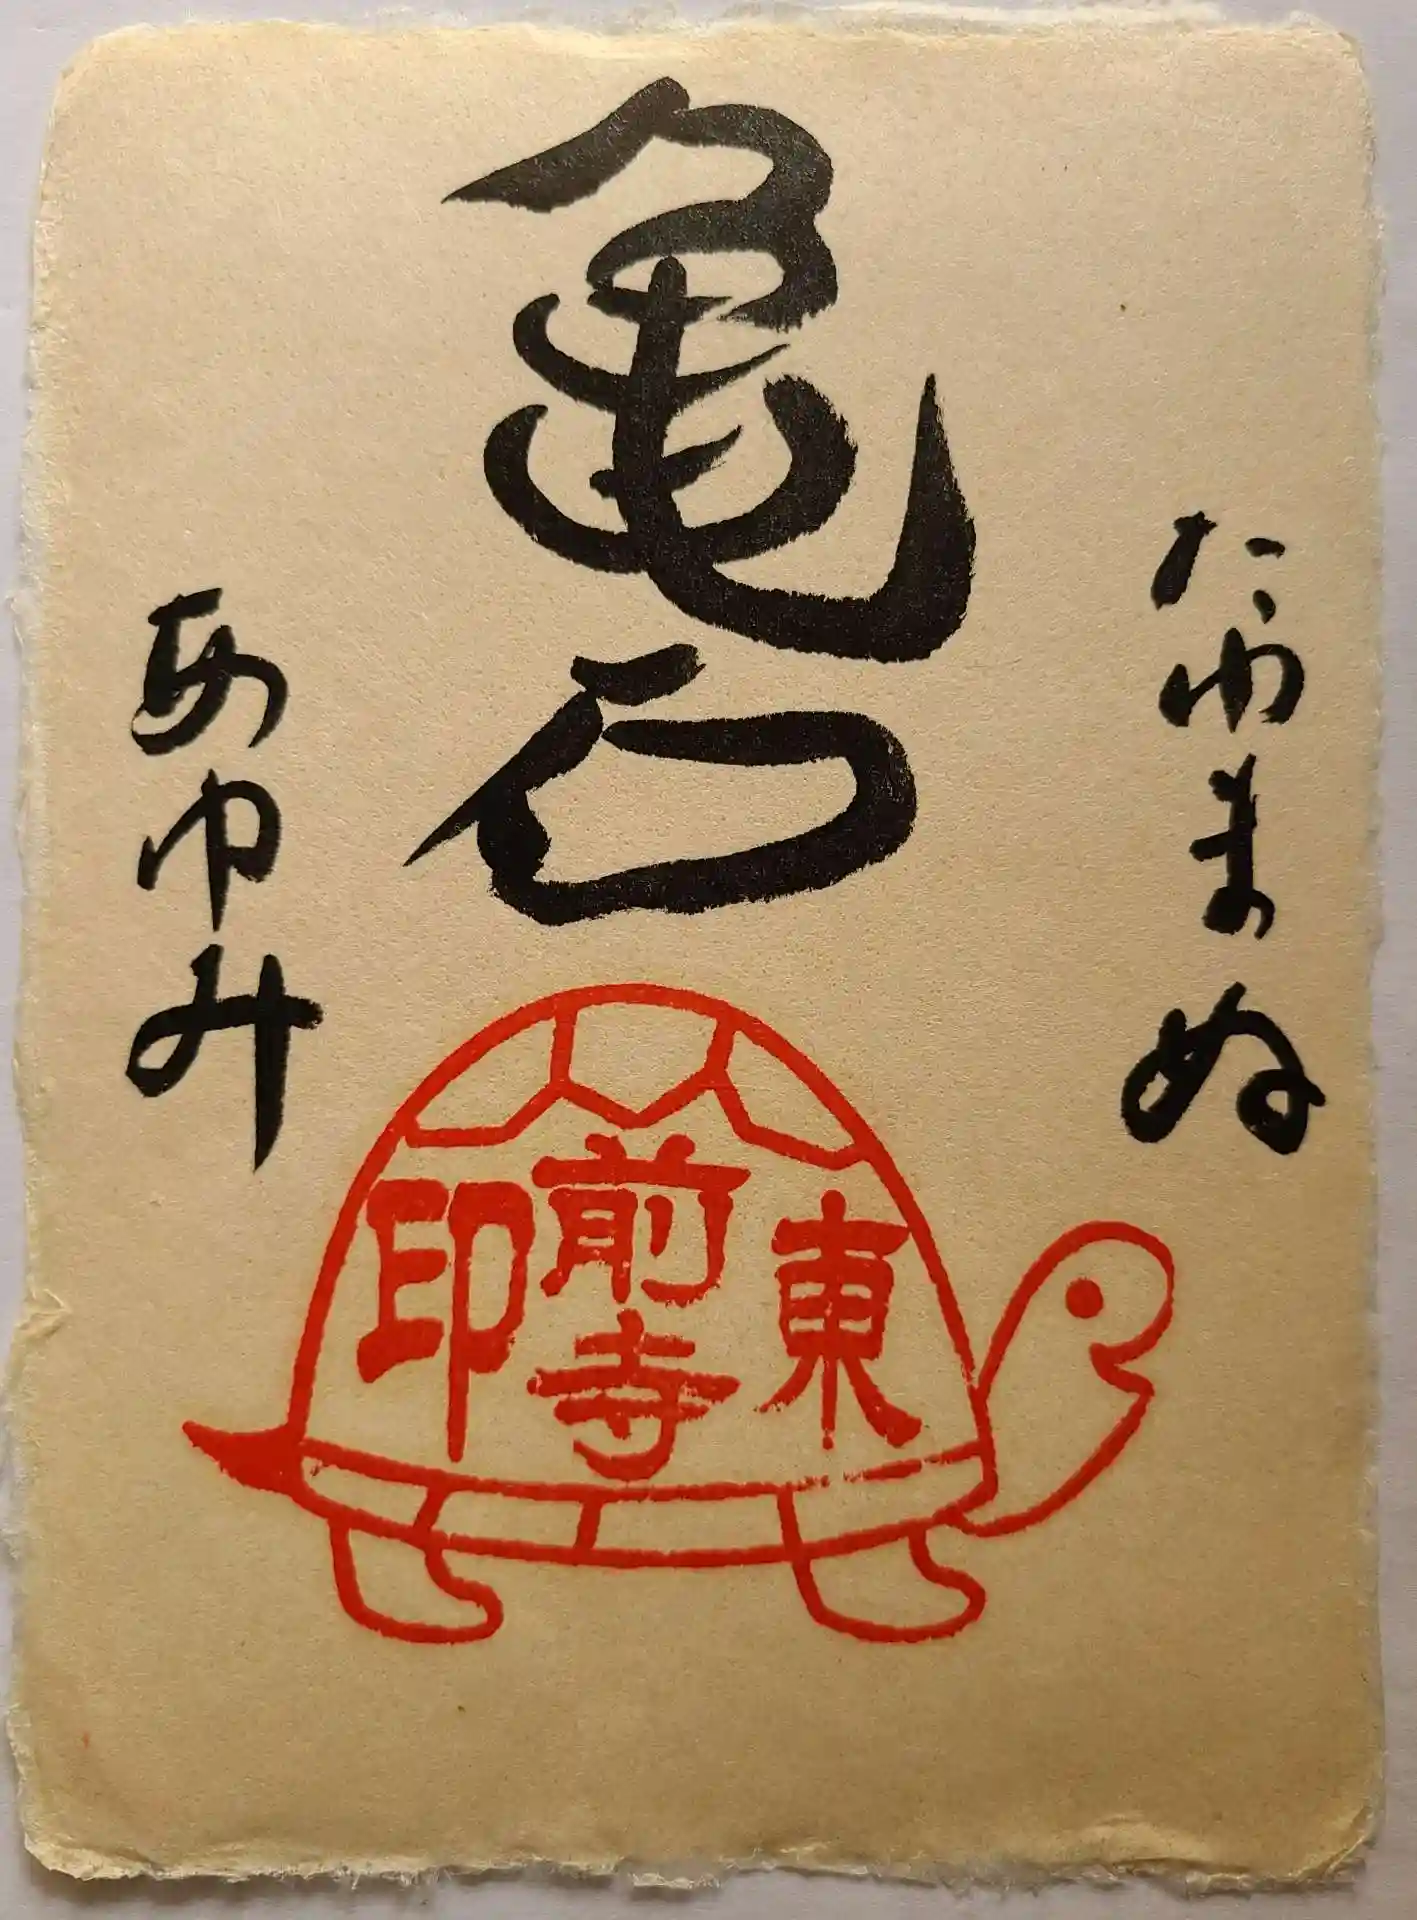 たゆまぬ
亀石
あゆみ
東
前寺
印